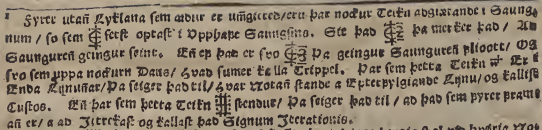 Fyrer utañ Lyklana sem aður er umgiteed/eru þar nockur Teikn aðgiætande i Saung-
num / so sem serst optast i Upphape Saungsins. Sie það þa merker það / Að
Saungureñ geingur seint. Eñ ef það er svo Þa geingur Saungureñ pliott / Og
svo sem uppa nockurn Dans / hvað sumer kalla Trippel. Þar sem þetta Teikn Er i
Enda Lynunar / Þa seiger það til / hvar Notañ stande a Epterfylgiande Lynu / og kallast
Custos. Eñ þar sem þetta Teikn stendur / Þa seiger það til / ad það sem fyrer fram-
añ er / a að Jtrekast og kallast það Signum Jterationis.